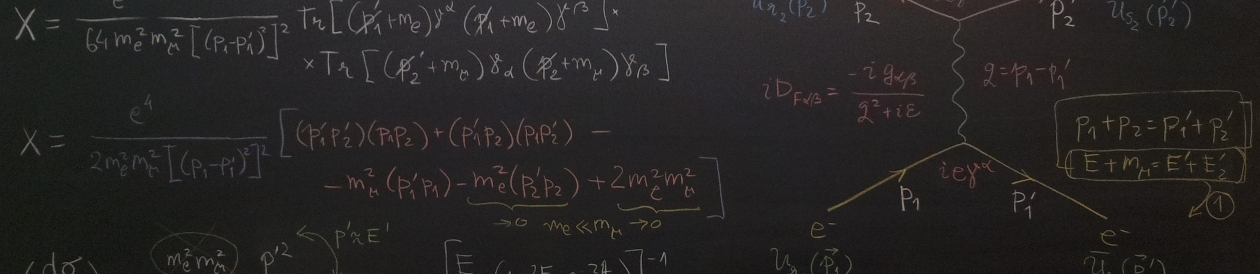 X = e / 64 m_e² m_μ² [(p₁-p₁')²]² Tr[(p̸₁'+m_e)γ^α (p̸₁+m_e)γ^β] ×
× Tr[(p̸₂'+m_μ)γ_α (p̸₂+m_μ)γ_β]
X = e⁴ / 2m_e² m_μ² [(p₁-p₁')²]² [(p₁'p₂')(p₁p₂) + (p₁'p₂)(p₁p₂') −
− m_μ² (p₁'p₁) − m_e² (p₂'p₂) + 2m_e² m_μ²]
→ 0 m_e ≪ m_μ → 0
m_e² m_μ² p'² p' ≈ E'
p₂ p₂' u_{s₂}(p₂')
iD_{Fαβ} = -i g_{αβ} / q² + iε
q = p₁ - p₁'
p₁ + p₂ = p₁' + p₂'
E + m_μ = E' + E₂'
1
ieγ^α
p₁ p₁'
e⁻ e⁻